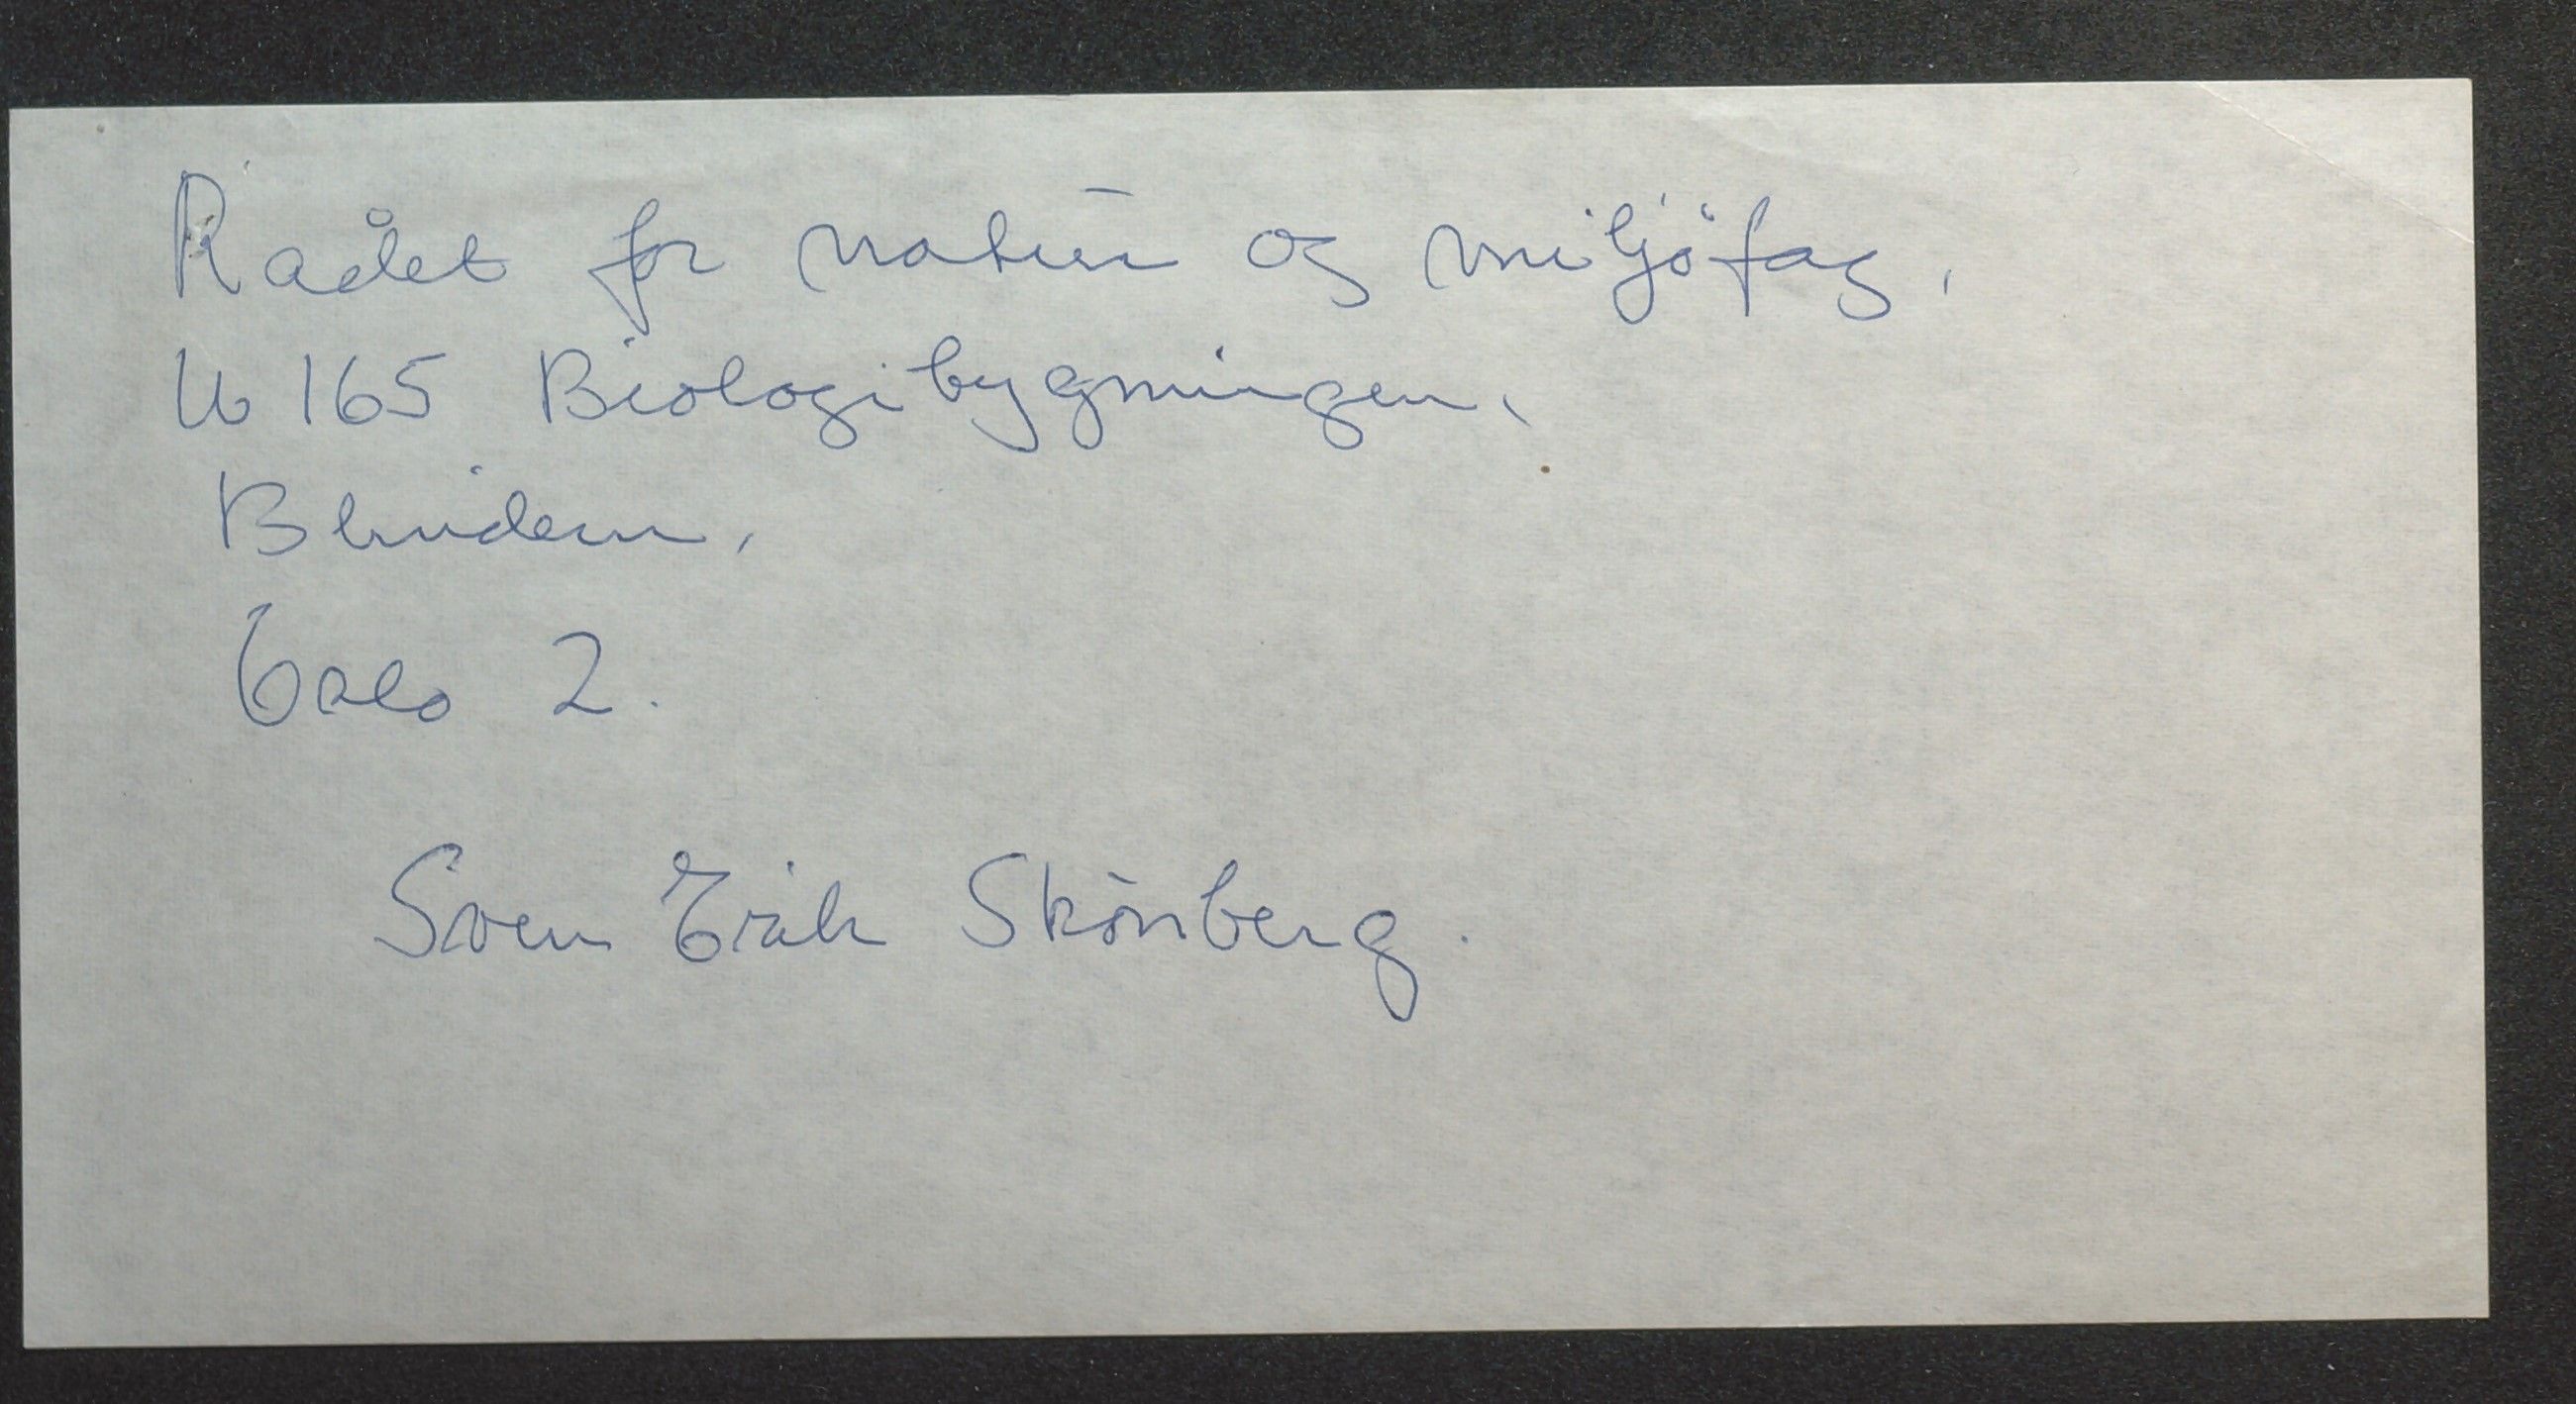 Rådet for natur og miljöfag,
Ub 165 Biologibygningen,
Blindern,
Oslo 2.
Sven Erik Skönberg.